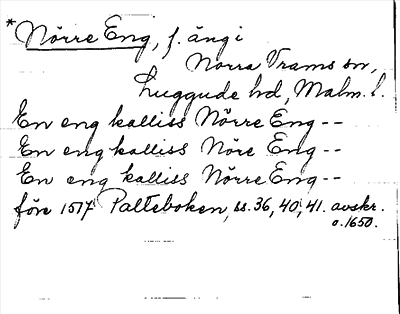 *Nörre Eng, f. äng i
Norra Vrams sn,
Luggude hd, Malm. l.
En eng kalliss Nörre Eng --
En eng kalliss Nöre Eng --
En eng kalliss Nörre Eng --
före 1517 Palteboken, ss. 36, 40, 41. avskr.
o. 1650.